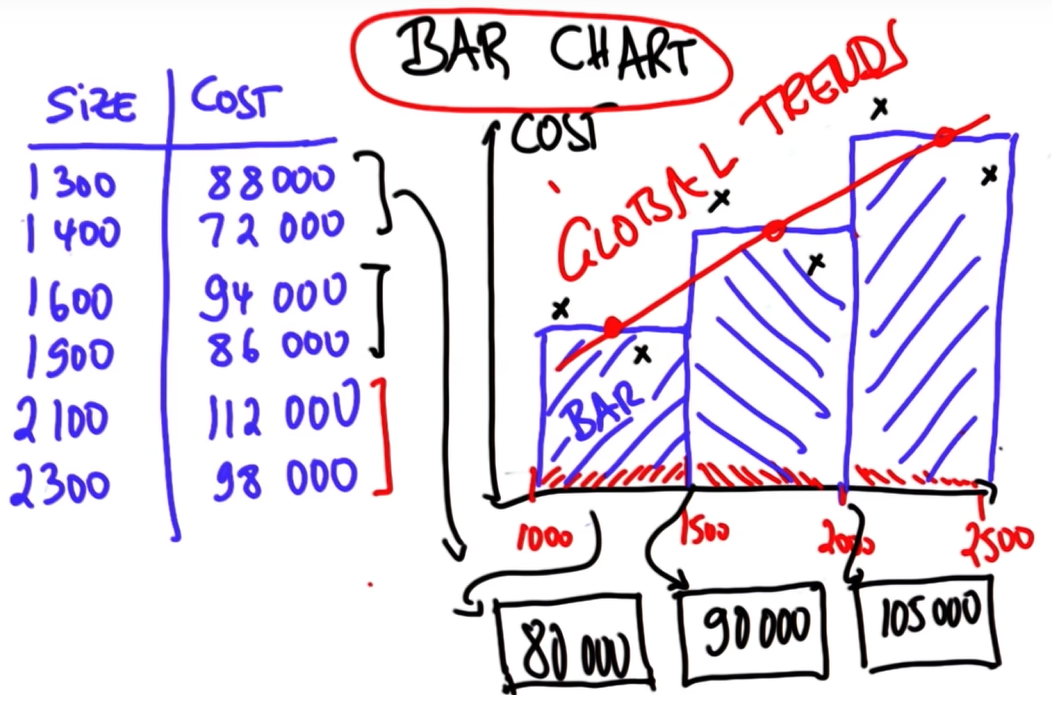 BAR CHART
SIZE COST
1300 88000
1400 72 000
1600 94 000
1900 86 000
2100 112 000
2300 98 000
COST
GLOBAL TRENDS
BAR
1000 1500 2000 2500
80 000 90 000 105 000